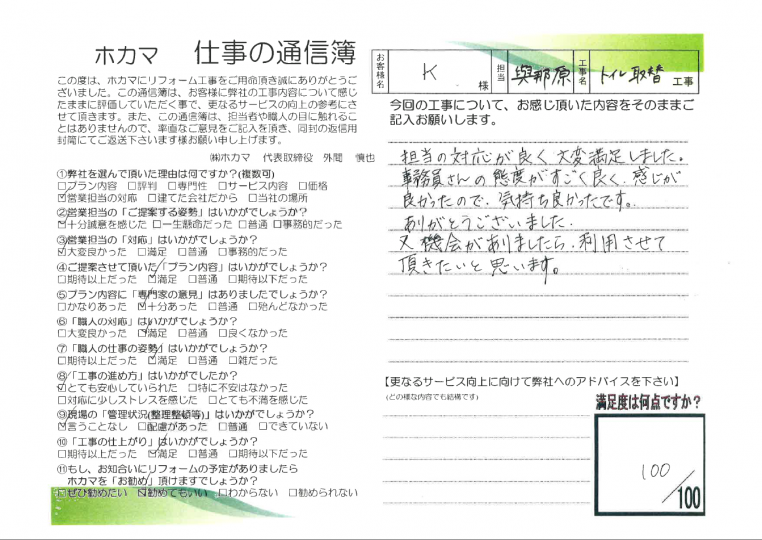 ホカマ 仕事の通信簿
この度は、ホカマにリフォーム工事をご用命頂き誠にありがとうご
ざいました。この通信簿は、お客様に弊社の工事内容について感じ
たままに評価していただく事で、更なるサービスの向上の参考にさ
せて頂きます。また、この通信簿は、担当者や職人の目に触れるこ
とはありませんので、率直なご意見をご記入を頂き、同封の返信用
封筒にてご返送下さいます様お願い申し上げます。
㈱ホカマ 代表取締役 外間 慎也
①弊社を選んで頂いた理由は何ですか?(複数可)
□プラン内容 □評判 □専門性 □サービス内容 □価格
☑営業担当の対応 □建てた会社だから □当社の場所
②営業担当の「ご提案する姿勢」はいかがでしょうか?
☑十分誠意を感じた □一生懸命だった □普通 □事務的だった
③営業担当の「対応」はいかがでしょうか?
☑大変良かった □満足 □普通 □事務的だった
④ご提案させて頂いた「プラン内容」はいかがでしょうか?
□期待以上だった ☑満足 □普通 □期待以下だった
⑤プラン内容に「専門家の意見」はありましたでしょうか?
□かなりあった ☑十分あった □普通 □殆んどなかった
⑥「職人の対応」はいかがでしょうか?
□大変良かった ☑満足 □普通 □良くなかった
⑦「職人の仕事の姿勢」はいかがでしょうか?
□期待以上だった ☑満足 □普通 □雑だった
⑧「工事の進め方」はいかがでしたか?
☑とても安心していられた □特に不安はなかった
□対応に少しストレスを感じた □とても不満を感じた
⑨現場の「管理状況(整理整頓等)」はいかがでしょうか?
☑言うことなし □配慮があった □普通 □できていない
⑩「工事の仕上がり」はいかがでしょうか?
□期待以上だった ☑満足 □普通 □期待以下だった
⑪もし、お知合いにリフォームの予定がありましたら
ホカマを「お勧め」頂けますでしょうか?
□ぜひ勧めたい ☑勧めてもいい □わからない □勧められない
お客様名 K 様 担当 與那原 工事名 トイレ取替 工事
今回の工事について、お感じ頂いた内容をそのままご
記入お願いします。
担当の対応が良く大変満足しました。
事務員さんの態度がすごく良く、感じが
良かったので、気持ち良かったです。
ありがとうございました。
又機会がありましたら、利用させて
頂きたいと思います。
【更なるサービス向上に向けて弊社へのアドバイスを下さい】
(どの様な内容でも結構です)
満足度は何点ですか?
100/100